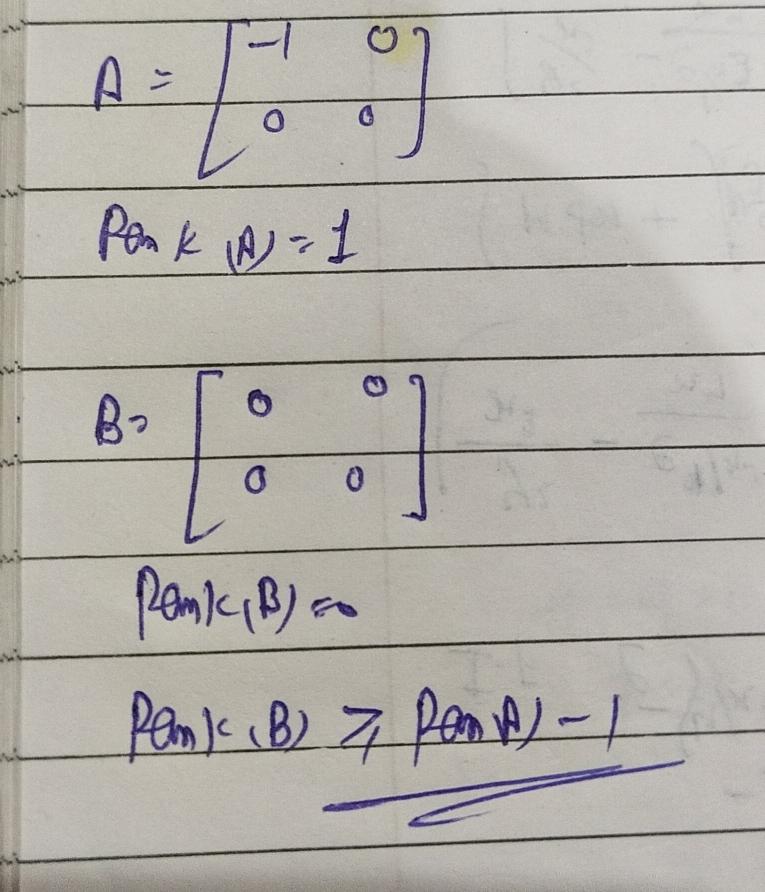 A = [-1 0
0 0]
Rank (A) = 1
B = [0 0
0 0]
Rank (B) = 0
Rank (B) ≥ Ran (A) - 1